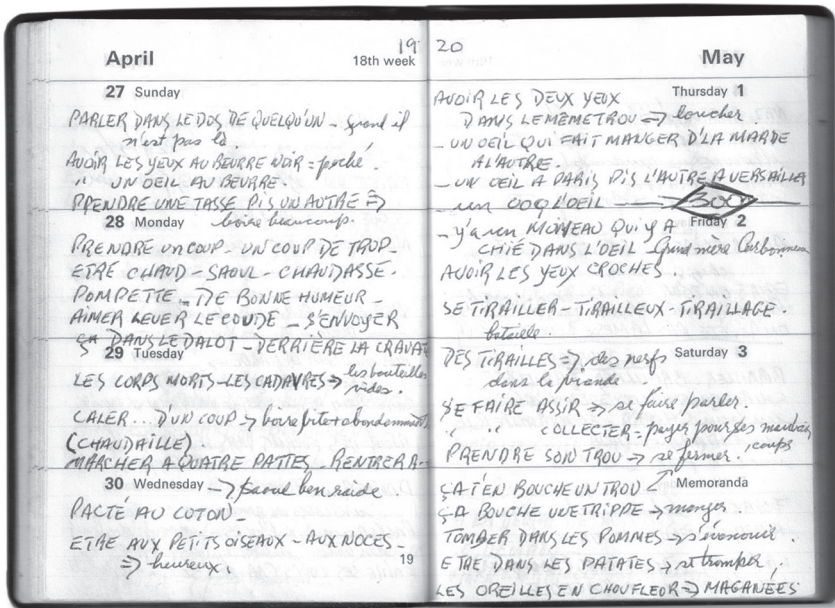 April
18th week 19
27 Sunday
PARLER DANS LE DOS DE QUELQU'UN - quand il
n'est pas là.
AVOIR LES YEUX AU BEURRE NOIR = poché.
" UN OEIL AU BEURRE.
PRENDRE UNE TASSE PIS UN AUTRE ⇒
28 Monday boire beaucoup.
PRENDRE UN COUP - UN COUP DE TROP -
ETRE CHAUD - SAOUL - CHAUDASSE -
POMPETTE - DE BONNE HUMEUR -
AIMER LEVER LE COUDE - S'ENVOYER
ÇA DANS LE DALOT - DERRIÈRE LA CRAVAT
29 Tuesday
LES CORPS MORTS - LES CADAVRES → les bouteilles
vides.
CALER... D'UN COUP → boire vite + abondamment
(CHAUDAILLE)
MARCHER A QUATRE PATTES. RENTRER A.
30 Wednesday → saoul ben raide
PACTÉ AU COTON -
ETRE AUX PETITS OISEAUX - AUX NOCES -
⇒ heureux.
19
20 May
Thursday 1
AVOIR LES DEUX YEUX
DANS LE MÊME TROU ⇒ loucher
- UN OEIL QUI FAIT MANGER D'LA MARDE
A L'AUTRE.
- UN OEIL A PARIS PIS L'AUTRE A VERSAILLES
- un COQ L'OEIL 300
Friday 2
- y'a un MOINEAU QUI Y A
CHIÉ DANS L'OEIL - Grand-mère
AVOIR LES YEUX CROCHES.
SE TIRAILLER - TIRAILLEUX - TIRAILLAGE.
bataille.
Saturday 3
DES TIRAILLES ⇒ des nerfs
dans la viande
SE FAIRE ASSIR → se faire parler.
" " COLLECTER = payer pour ses mauvais
coups
PRENDRE SON TROU → se fermer.
Memoranda
ÇA T'EN BOUCHE UN TROU
ÇA BOUCHE UNE TRIPPE → manger.
TOMBER DANS LES POMMES → s'évanouir.
ETRE DANS LES PATATES → se tromper.
LES OREILLES EN CHOUFLEUR ⇒ MAGANÉES